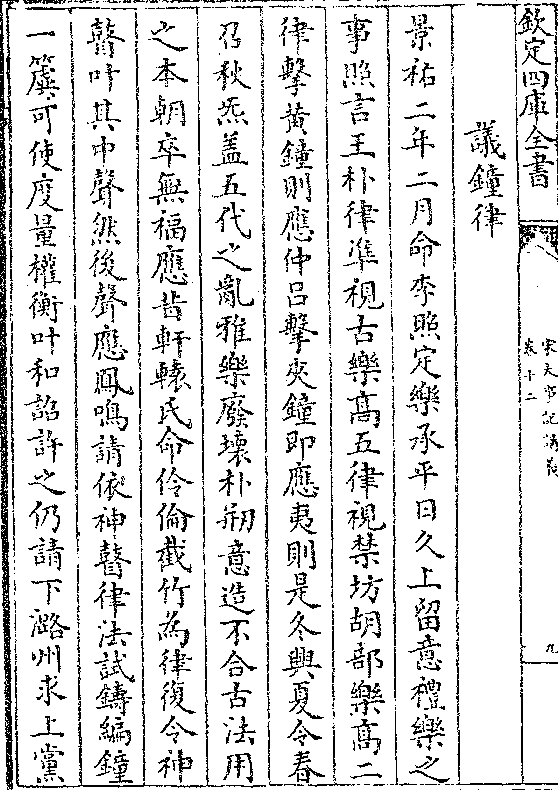 欽定四庫全書
宋大事記講義
卷十二
九
議鐘律
景祐二年二月命李照定樂承平日久上留意禮樂之
事照言王朴律準視古樂高五律視禁坊胡部樂高二
律擊黄鐘則應仲吕擊夾鐘即應夷則是冬興夏令春
召秋炁盖五代之亂雅樂廢壊朴剏意造不合古法用
之本朝卒無福應昔軒轅氏命伶倫截竹為律復令神
瞽叶其中聲然後聲應鳳鳴請依神瞽律法試鑄編鐘
一簴可使度量權衡叶和詔許之仍請下潞州求上黨